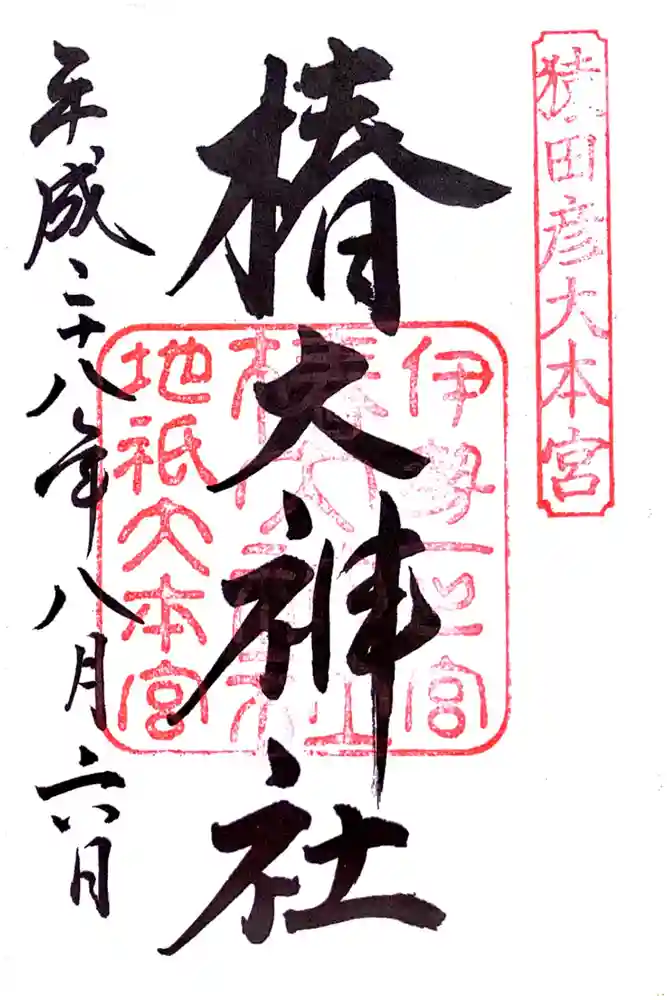 猿田彦大本宮
椿大神社
伊勢一之宮
椿大神社
地祇大本宮
平成二十八年八月六日